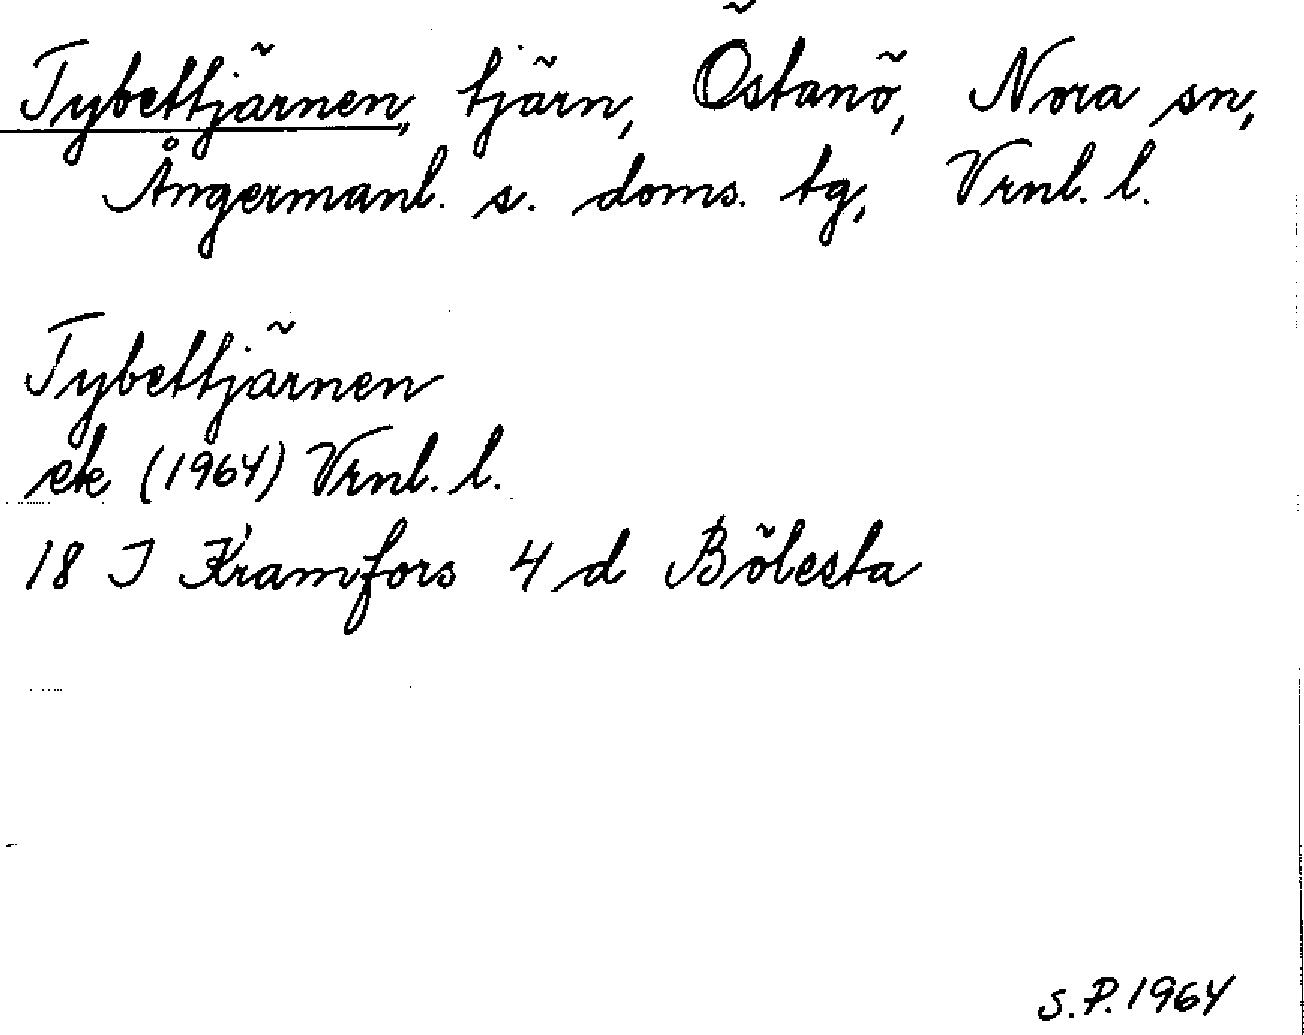 Tybettjärnen, tjärn, Östanö, Nora sn,
Ångermanl. s. doms. tg, Vrnl. l.
Tybettjärnen
ek (1964) Vrnl. l.
18 I Kramfors 4 d Bölesta
S.P. 1964